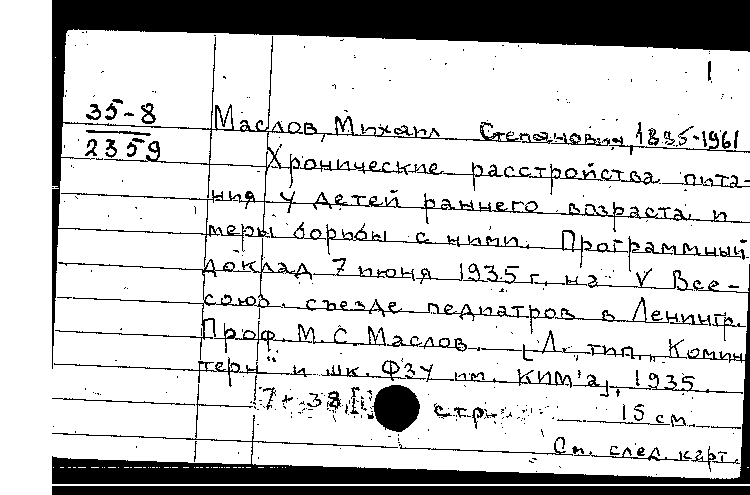 1
35-8
2359
Маслов, Михаил Степанович, 1885-1961
Хронические расстройства пита-
ния у детей раннего возраста и
меры борьбы с ними. Программный
доклад 7 июня 1935 г. на V Все-
союз. съезде педиатров в Ленингр.
Проф. М. С. Маслов. [Л., тип. „Комин-
терн" и шк. ФЗУ им. КИМ'а], 1935.
38, [1] стр. 15 см.
См. след. карт.